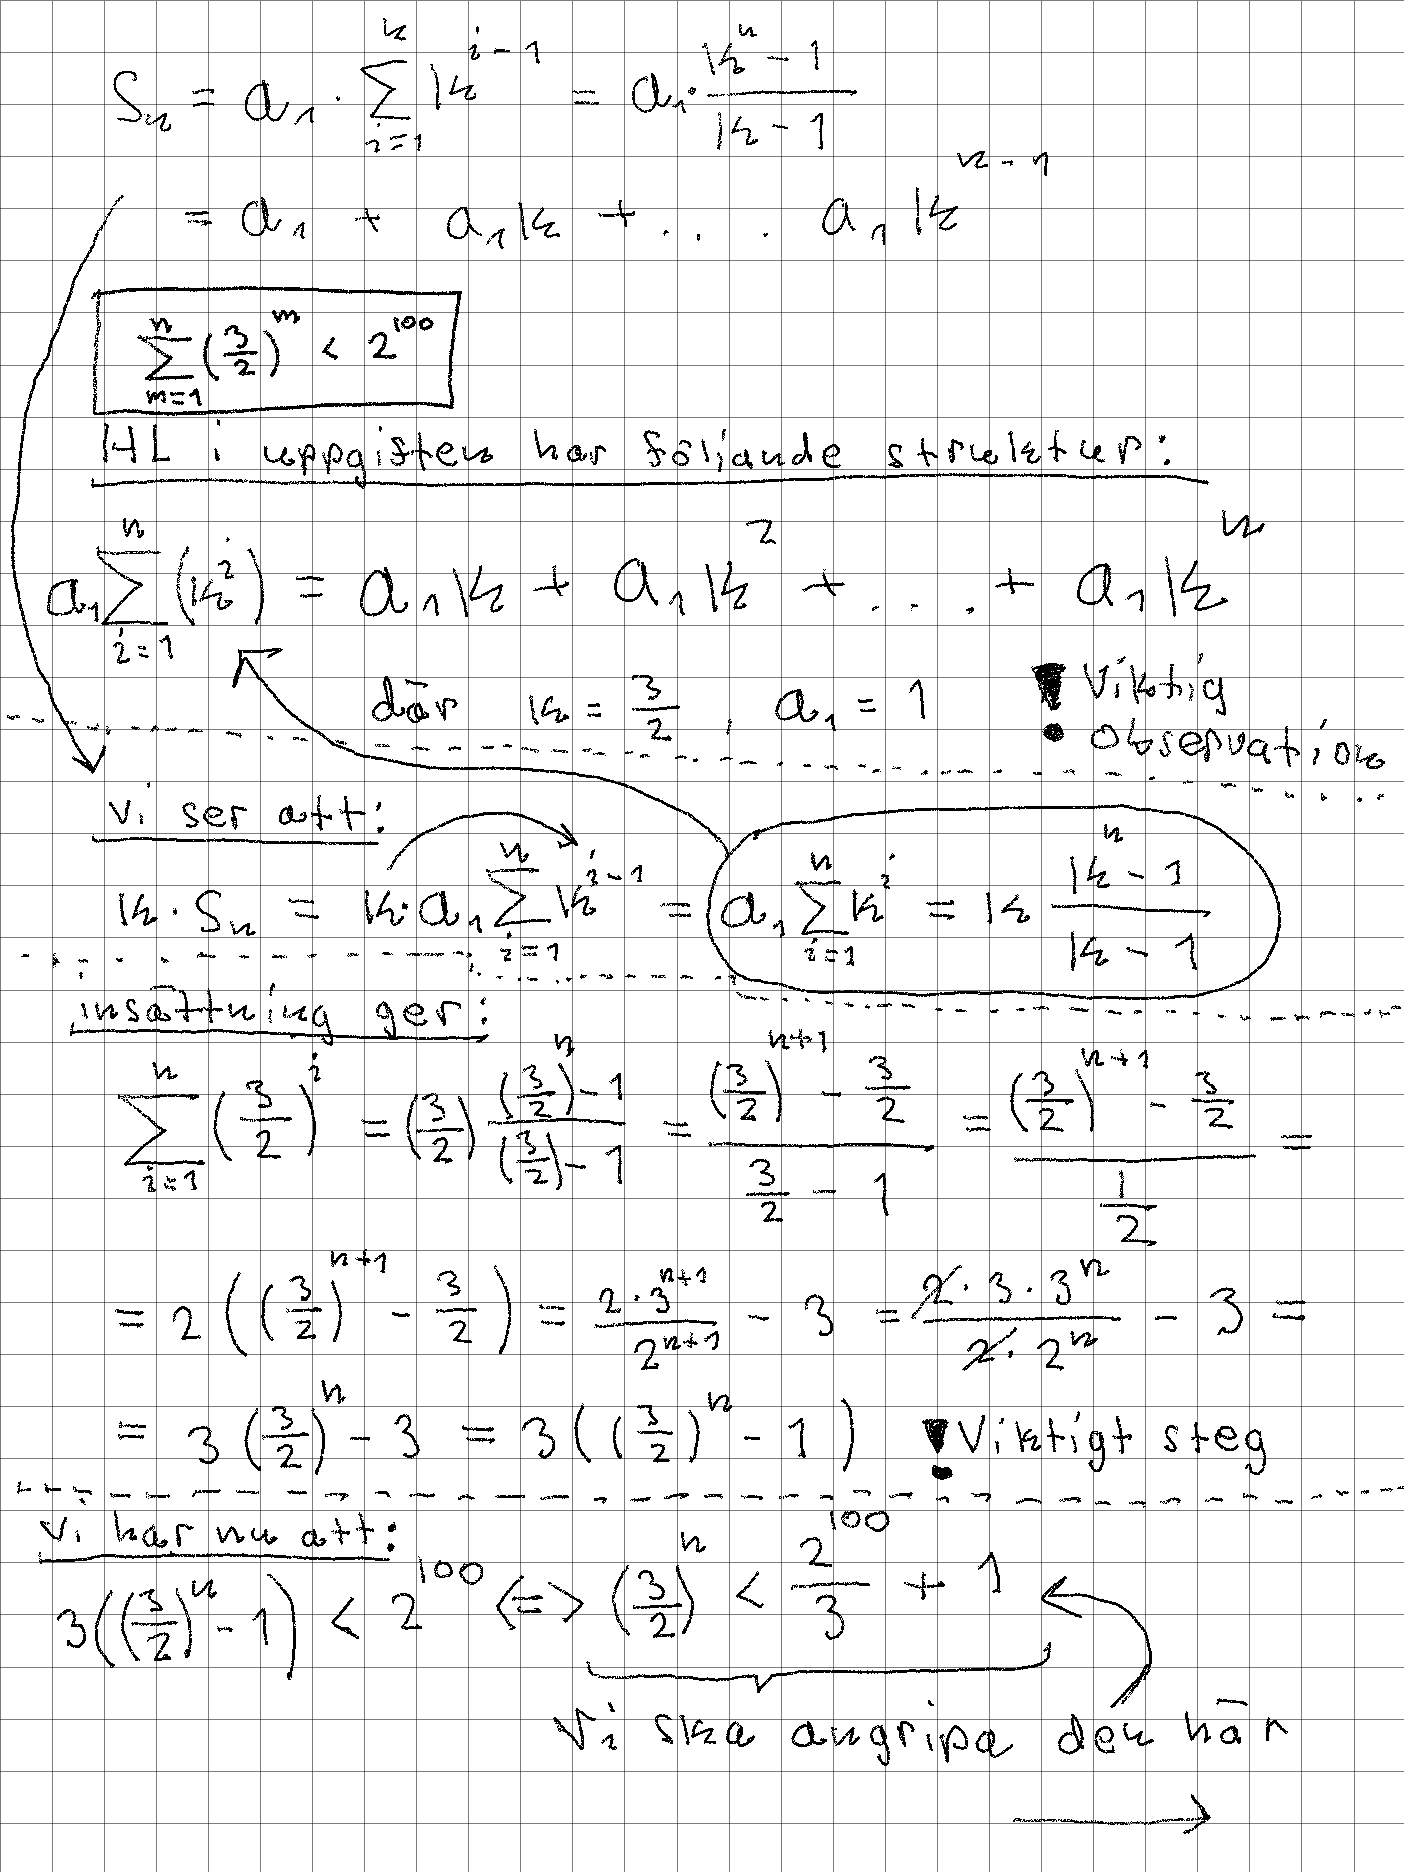 Sₙ = a₁ · ∑_{i=1}^{k} k^{i-1} = a₁ · (kⁿ - 1)/(k - 1)
= a₁ + a₁k + . . . a₁k^{n-1}
∑_{m=1}^{n} (3/2)^m < 2^{100}
HL i uppgiften har följande struktur:
a₁ ∑_{i=1}^{n} (k^i) = a₁k + a₁k² + . . . + a₁kⁿ
där k = 3/2 , a₁ = 1 ! Viktig observation
vi ser att:
k · Sₙ = k · a₁ ∑_{i=1}^{n} k^{i-1} = a₁ ∑_{i=1}^{n} k^i = k (kⁿ - 1)/(k - 1)
insättning ger:
∑_{i=1}^{n} (3/2)^i = (3/2) ((3/2)ⁿ - 1)/((3/2) - 1) = ((3/2)^{n+1} - 3/2)/(3/2 - 1) = ((3/2)^{n+1} - 3/2)/(1/2) =
= 2((3/2)^{n+1} - 3/2) = (2 · 3^{n+1})/(2^{n+1}) - 3 = (2 · 3 · 3ⁿ)/(2 · 2ⁿ) - 3 =
= 3(3/2)ⁿ - 3 = 3((3/2)ⁿ - 1) ! Viktigt steg
vi har nu att:
3((3/2)ⁿ - 1) < 2^{100} <=> (3/2)ⁿ < 2^{100}/3 + 1
Vi ska angripa den här